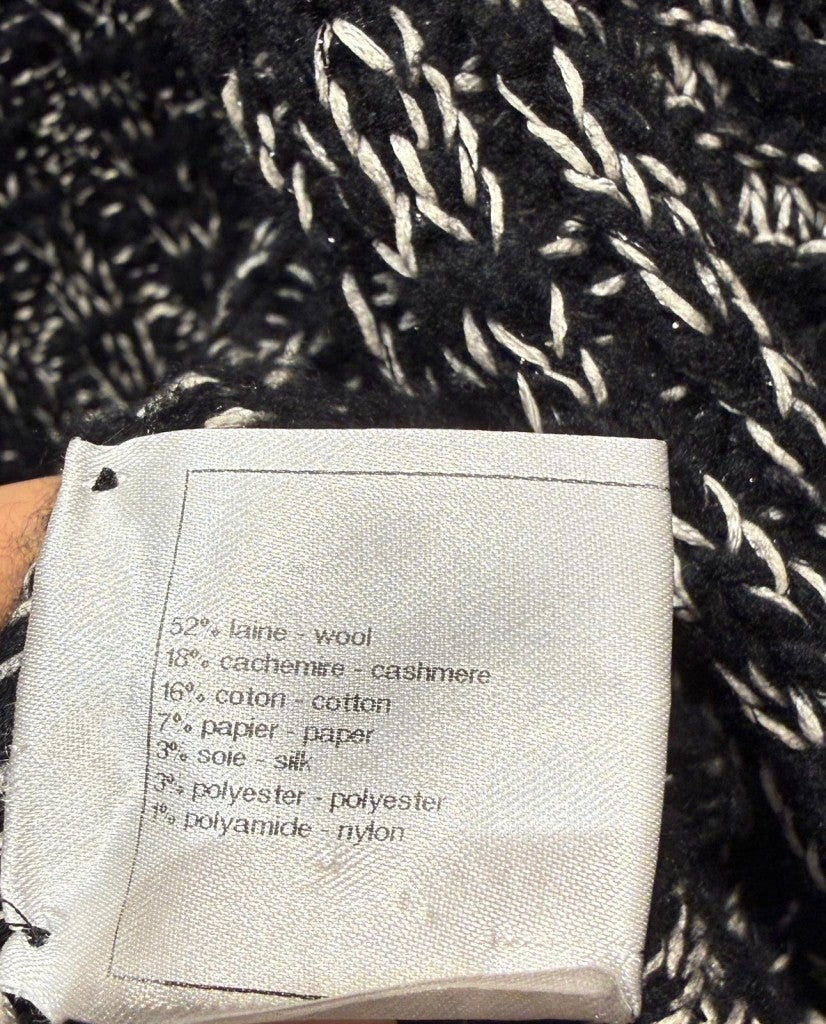 52% laine - wool
18% cachemire - cashmere
16% coton - cotton
7% papier - paper
3% soie - silk
3% polyester - polyester
1% polyamide - nylon